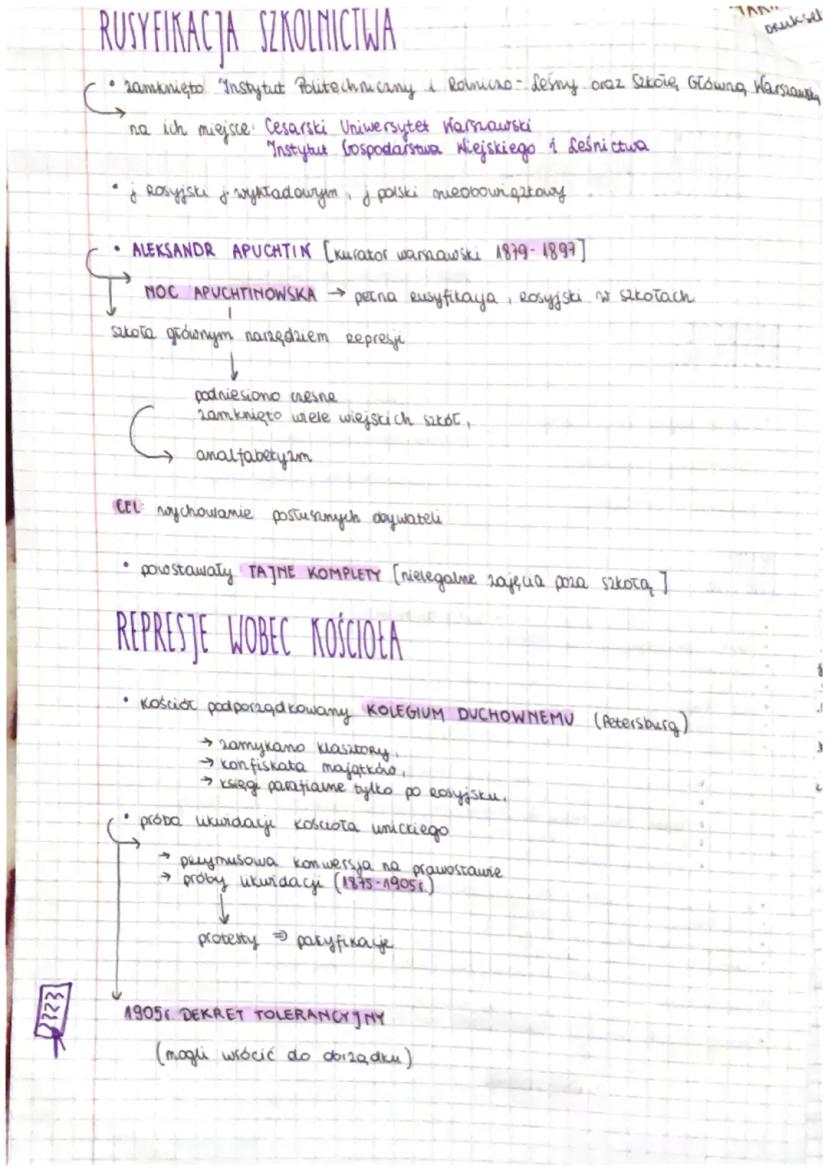 RUSYFIKACJA SZKOLNICTWA
• zamknięto Instytut Politechniczny i Rolniczo-Leśny oraz Szkołę Główną Warszawską
na ich miejsce: Cesarski Uniwersytet Warszawski
Instytut Gospodarstwa Wiejskiego i Leśnictwa
• j. Rosyjski j. wykładowym, j. polski nieobowiązkowy
• ALEKSANDR APUCHTIN [kurator warszawski 1879-1897]
NOC APUCHTINOWSKA → pełna rusyfikacja, Rosyjski w szkołach
szkoła głównym narzędziem represji
podniesiono czesne
zamknięto wiele wiejskich szkół,
analfabetyzm
CEL: wychowanie posłusznych obywateli
• powstawały TAJNE KOMPLETY [nielegalne zajęcia poza szkołą]
REPRESJE WOBEC KOŚCIOŁA
• Kościół podporządkowany KOLEGIUM DUCHOWNEMU (Petersburg)
→ zamykano klasztory,
→ konfiskata majątków,
→ księgi parafialne tylko po rosyjsku.
• próba likwidacji kościoła unickiego
→ przymusowa konwersja na prawosławie
→ próby likwidacji (1875-1905r.)
protesty ⇒ pacyfikacje
1905r. DEKRET TOLERANCYJNY
(mogli wrócić do obrządku)